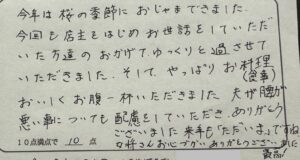 今年は桜の季節におじゃまできました。
今回も店主をはじめお世話をしていただ
いた方達のおかげでゆっくりと過させて
いただきました。そして、やっぱりお料理
(食事)
おいしくお腹一杯いただきました。夫が腰が
悪い事についても配慮をしていただき、ありがとう
ございました 来年も"ただいま"ですね
女将さんお心づかいありがとうございました
最高!
10点満点で 10 点